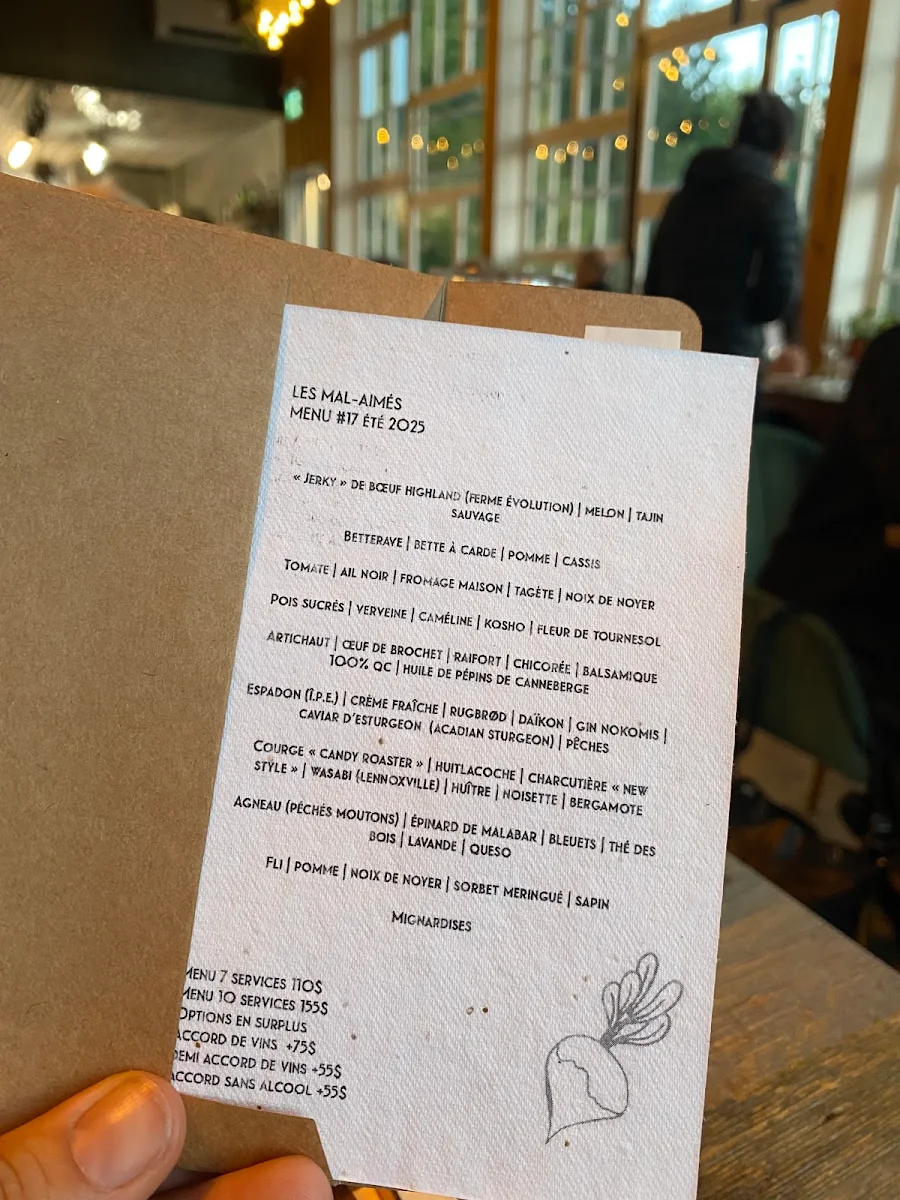 LES MAL-AIMÉS
MENU #17 ÉTÉ 2025
« JERKY » DE BŒUF HIGHLAND (FERME ÉVOLUTION) | MELON | TAJIN
SAUVAGE
BETTERAVE | BETTE À CARDE | POMME | CASSIS
TOMATE | AIL NOIR | FROMAGE MAISON | TAGÈTE | NOIX DE NOYER
POIS SUCRÉS | VERVEINE | CAMÉLINE | KOSHO | FLEUR DE TOURNESOL
ARTICHAUT | ŒUF DE BROCHET | RAIFORT | CHICORÉE | BALSAMIQUE
100% QC | HUILE DE PÉPINS DE CANNEBERGE
ESPADON (Î.P.E.) | CRÈME FRAÎCHE | RUGBRØD | DAÏKON | GIN NOKOMIS |
CAVIAR D'ESTURGEON (ACADIAN STURGEON) | PÊCHES
COURGE « CANDY ROASTER » | HUITLACOCHE | CHARCUTIÈRE « NEW
STYLE » | WASABI (LENNOXVILLE) | HUÎTRE | NOISETTE | BERGAMOTE
AGNEAU (PÉCHÉS MOUTONS) | ÉPINARD DE MALABAR | BLEUETS | THÉ DES
BOIS | LAVANDE | QUESO
FLI | POMME | NOIX DE NOYER | SORBET MERINGUÉ | SAPIN
MIGNARDISES
MENU 7 SERVICES 110$
MENU 10 SERVICES 155$
OPTIONS EN SURPLUS
ACCORD DE VINS +75$
DEMI ACCORD DE VINS +55$
ACCORD SANS ALCOOL +55$